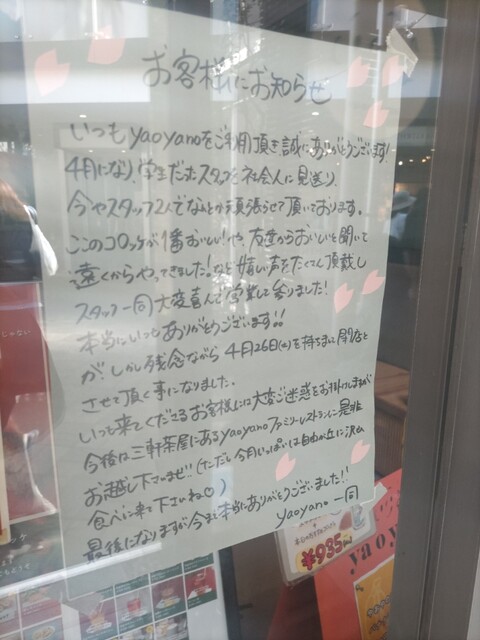 お客様にお知らせ
いつもyaoyanoをご利用頂き誠にありがとうございます!
4月になり、学生だったスタッフを社会人に見送り、
今やスタッフ2人でなんとか頑張らせて頂いております。
ここのコロッケが1番おいしい!や、友達からおいしいと聞いて
遠くからやってきました!など嬉しい声をたくさん頂戴し
スタッフ一同大変喜んで営業して参りました!
本当にいつもありがとうございます!!
が、しかし残念ながら4月26日(火)を持ちまして閉店と
させて頂く事になりました。
いつも来てくださるお客様には大変ご迷惑をお掛けしますが
今後は三軒茶屋にあるyaoyanoファミリーレストランに是非
お越し下さいませ!!(ただし今月いっぱいは自由が丘に沢山
食べに来て下さいね♡)
最後になりますが今まで本当にありがとうございました!!
yaoyano一同
じゃない
¥935
yaoy